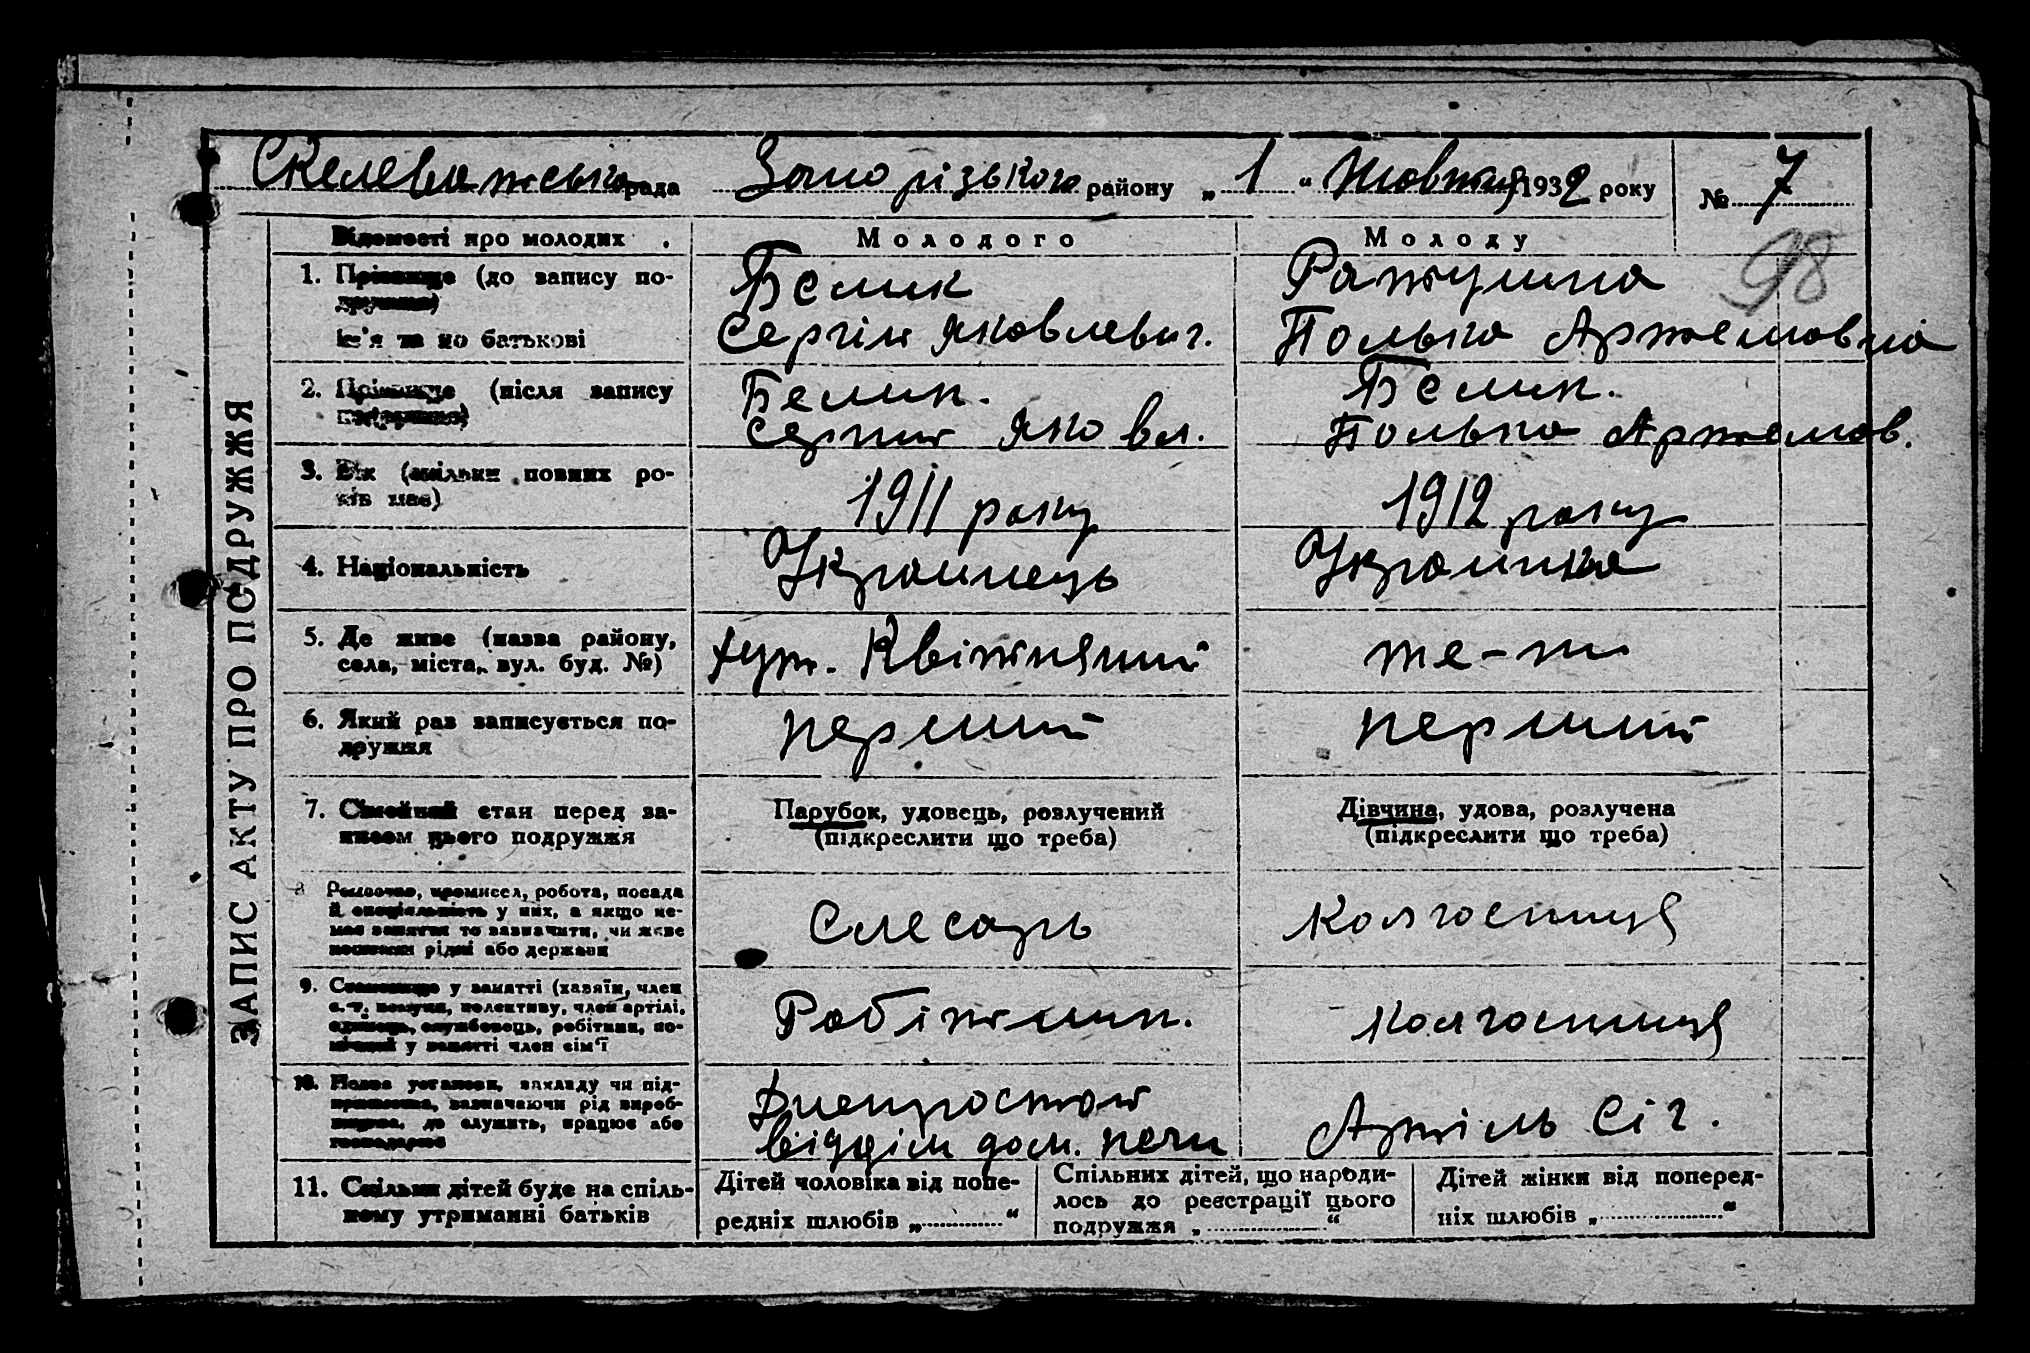 Скелеватська рада Запорізького району „ 1 “ Жовтня 1932 року № 7
98
ЗАПИС АКТУ ПРО ПОДРУЖЖЯ
Відомості про молодих
Молодого
Молоду
1. Прізвище (до запису по-
дружжя)
ім'я та по батькові
Белик
Сергій Яковлевич.
Полька Артемовна
2. Прізвище (після запису
подружжя)
Белик.
Сергий Яковл.
Белик.
Полька Артемов.
3. Вік (скільки повних ро-
ків має)
1911 року
1912 року
4. Національність
Украинець
Украинка
5. Де живе (назва району,
села, міста, вул. буд. №)
хут. Квітняний
те-ж
6. Який раз записується по-
дружжя
перший
перший
7. Сімейний стан перед за-
писом цього подружжя
Парубок, удовець, розлучений
(підкреслити що треба)
Дівчина, удова, розлучена
(підкреслити що треба)
8 Ремесло, промисел, робота, посада
й спеціяльність у них, а якщо не-
має заняття то зазначити, чи живе
коштами рідні або держави
Слесарь
Колгоспниця
9. Становище у занятті (хазяїн, член
с.-г. комуни, колективу, член артілі,
одинець, службовець, робітник, по-
мічний у занятті член сім'ї
Робітник.
Колгоспниця
10. Назва установи, закладу чи під-
приємства, зазначаючи рід вироб-
ництва, де служить, працює або
господарює
Днепростой
відділ дом. печи
Артіль Січ.
11. Скільки дітей буде на спіль-
ному утриманні батьків
Дітей чоловіка від попе-
редніх шлюбів „ “
Спільних дітей, що народи-
лось до реєстрації цього
подружжя „ “
Дітей жінки від поперед-
ніх шлюбів „ “